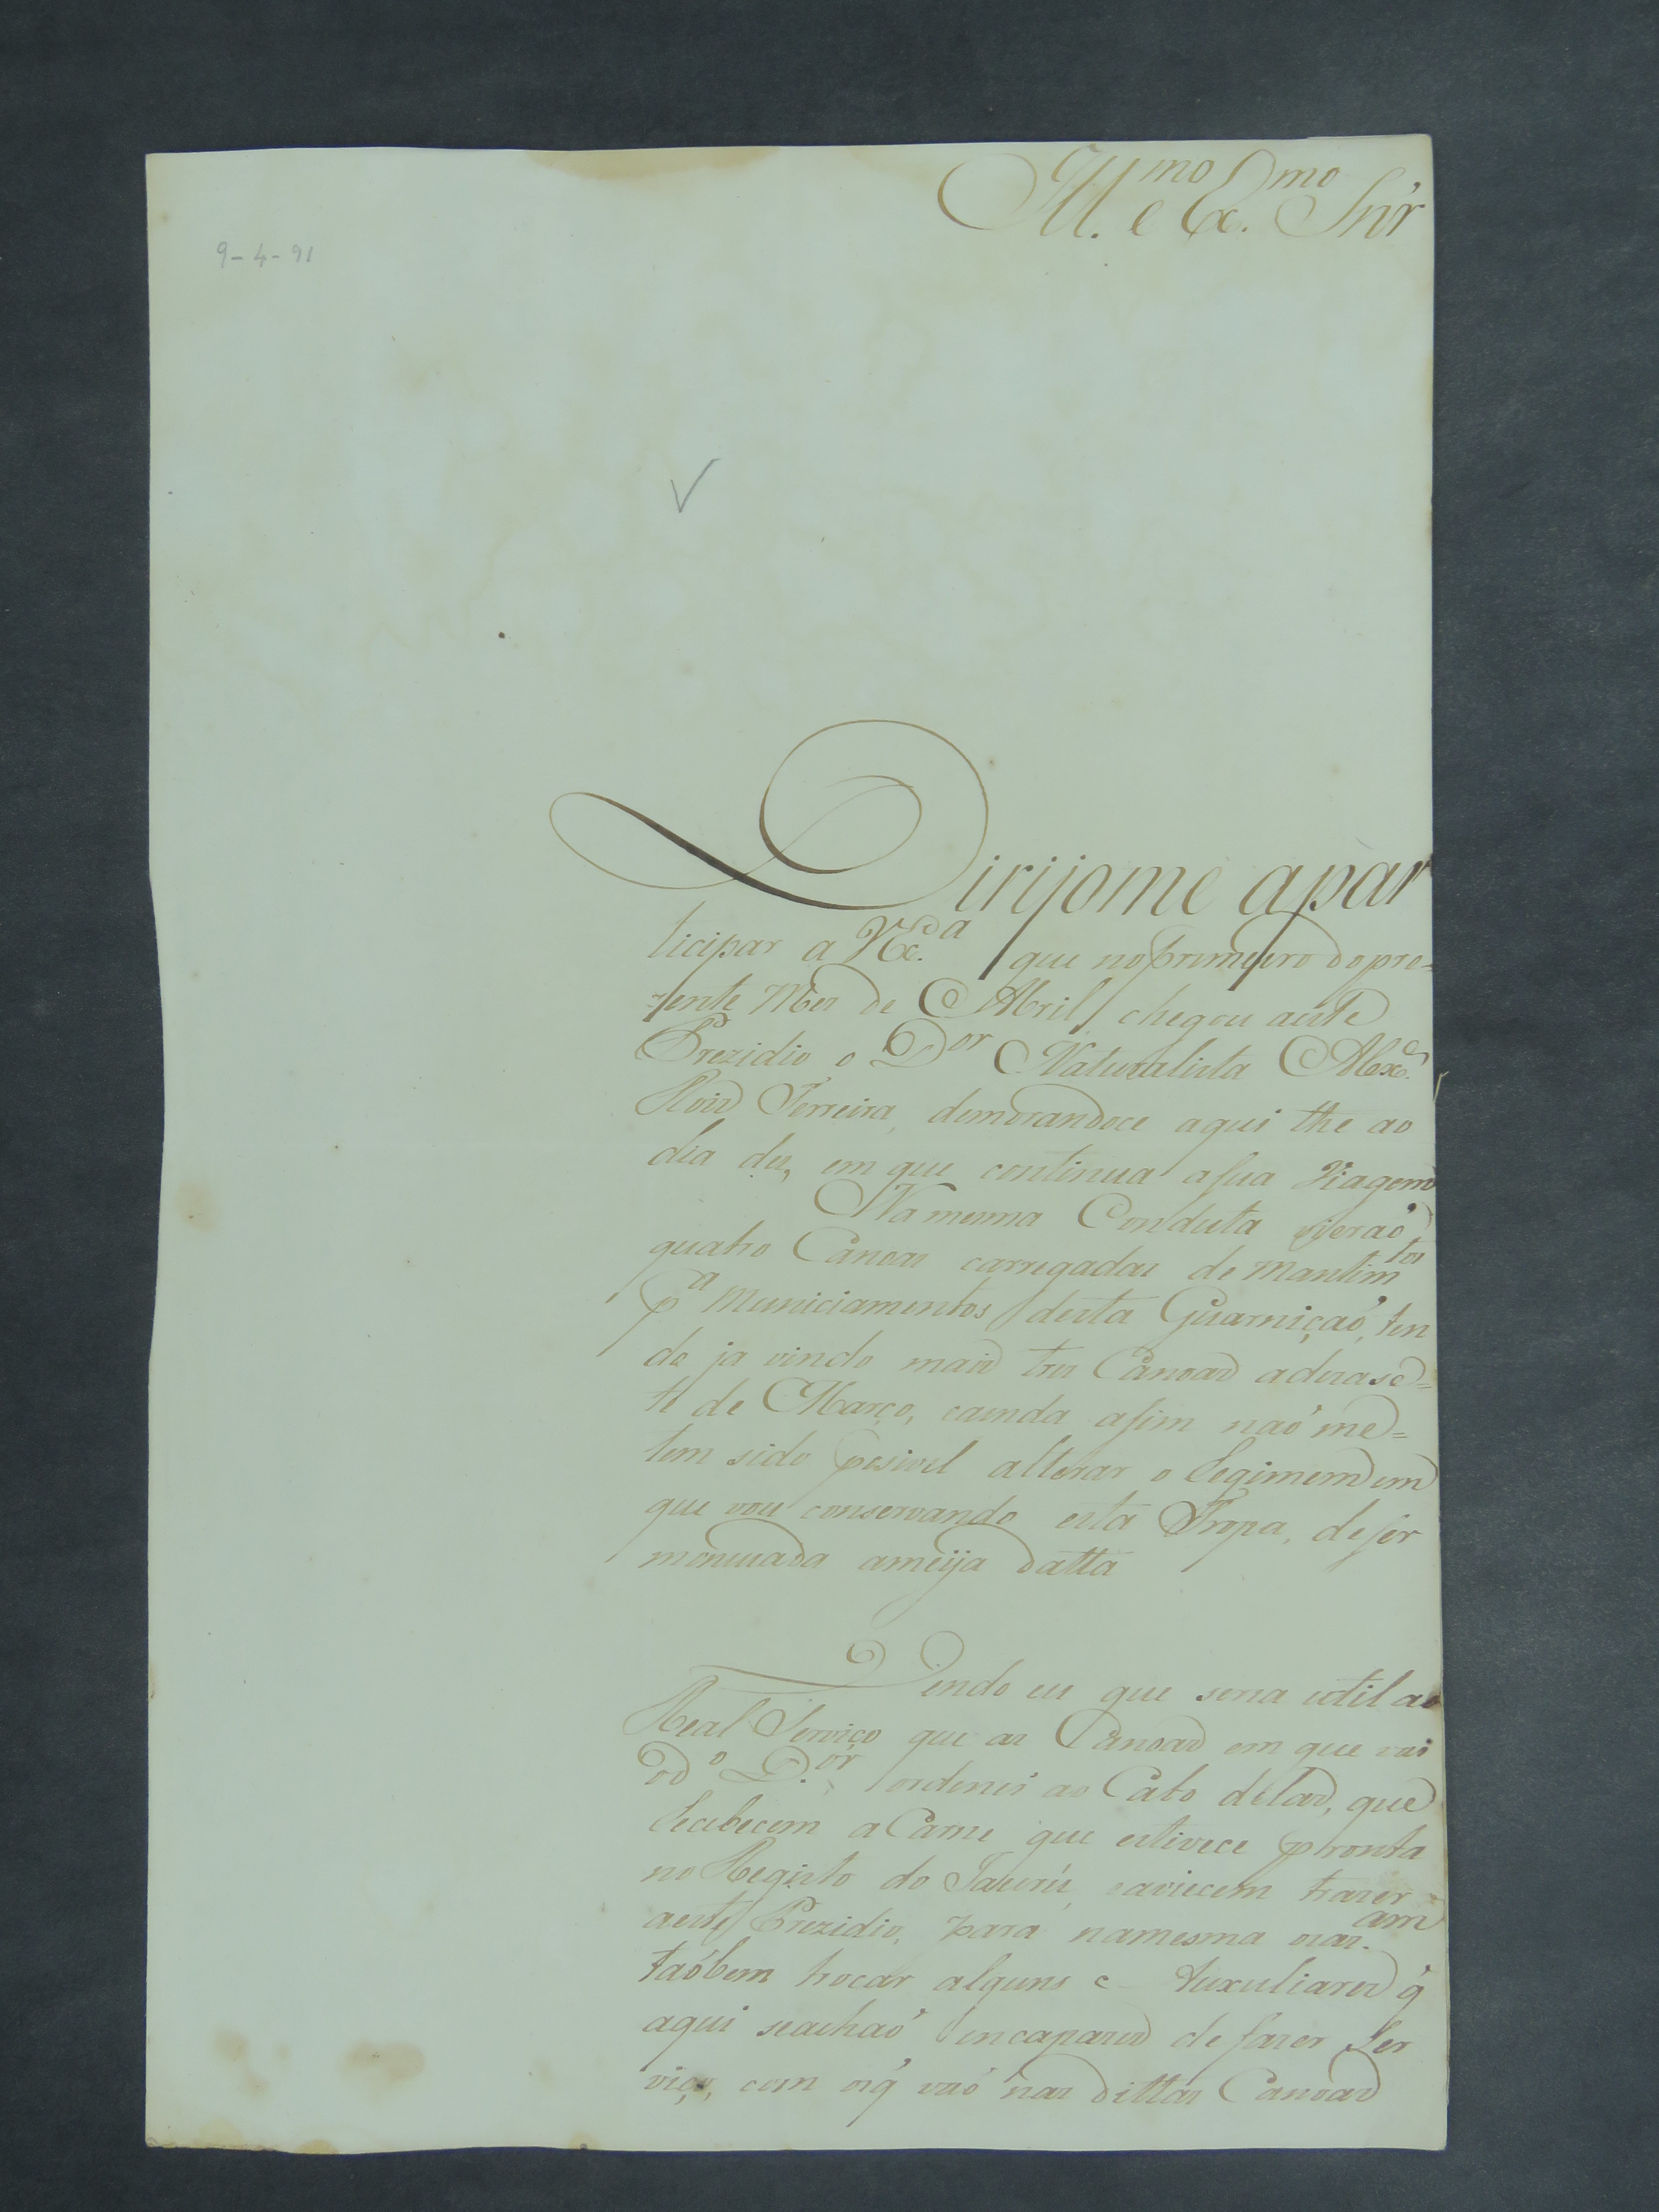 Ill.mo e Ex.mo Snr̃
9-4-91
Dirijome apar
ticipar a V Ex.a que no primeiro do pre-
zente Mes de Abril, chegou aeste
Prezidio o Dor Naturalista Alex.e
Roiz Ferreira, demorandoce aqui the ao
dia des, em que continua a sua Viagem
Na mesma Conduta vieraó
quatro Canoas carregadas de Mantim.tos
p.a Municiamentos desta Guarniçaó, ten
do ja vindo mais tres Canoas adezase=
te de Março, eainda asim naó me=
tem sido posivel alterar o Regimem em
que vou conservando esta Tropa, de ser
monuiada ameija datta
Vendo eu que seria util ao
Real Serviço que as Canoas em que vai
od.o D.or ordenei ao Cabo delas, que
Recebecem a Carne que estivece pronta
no Registo do Jaurú, eaviecem trazer
aeste Prezidio, para namesma ocaz.am
taóbem trocar alguns Auxuliares q̃
aqui seachaó incapazes de fazer Ser
viço, com os q̃ vaó nas dittas Canoas